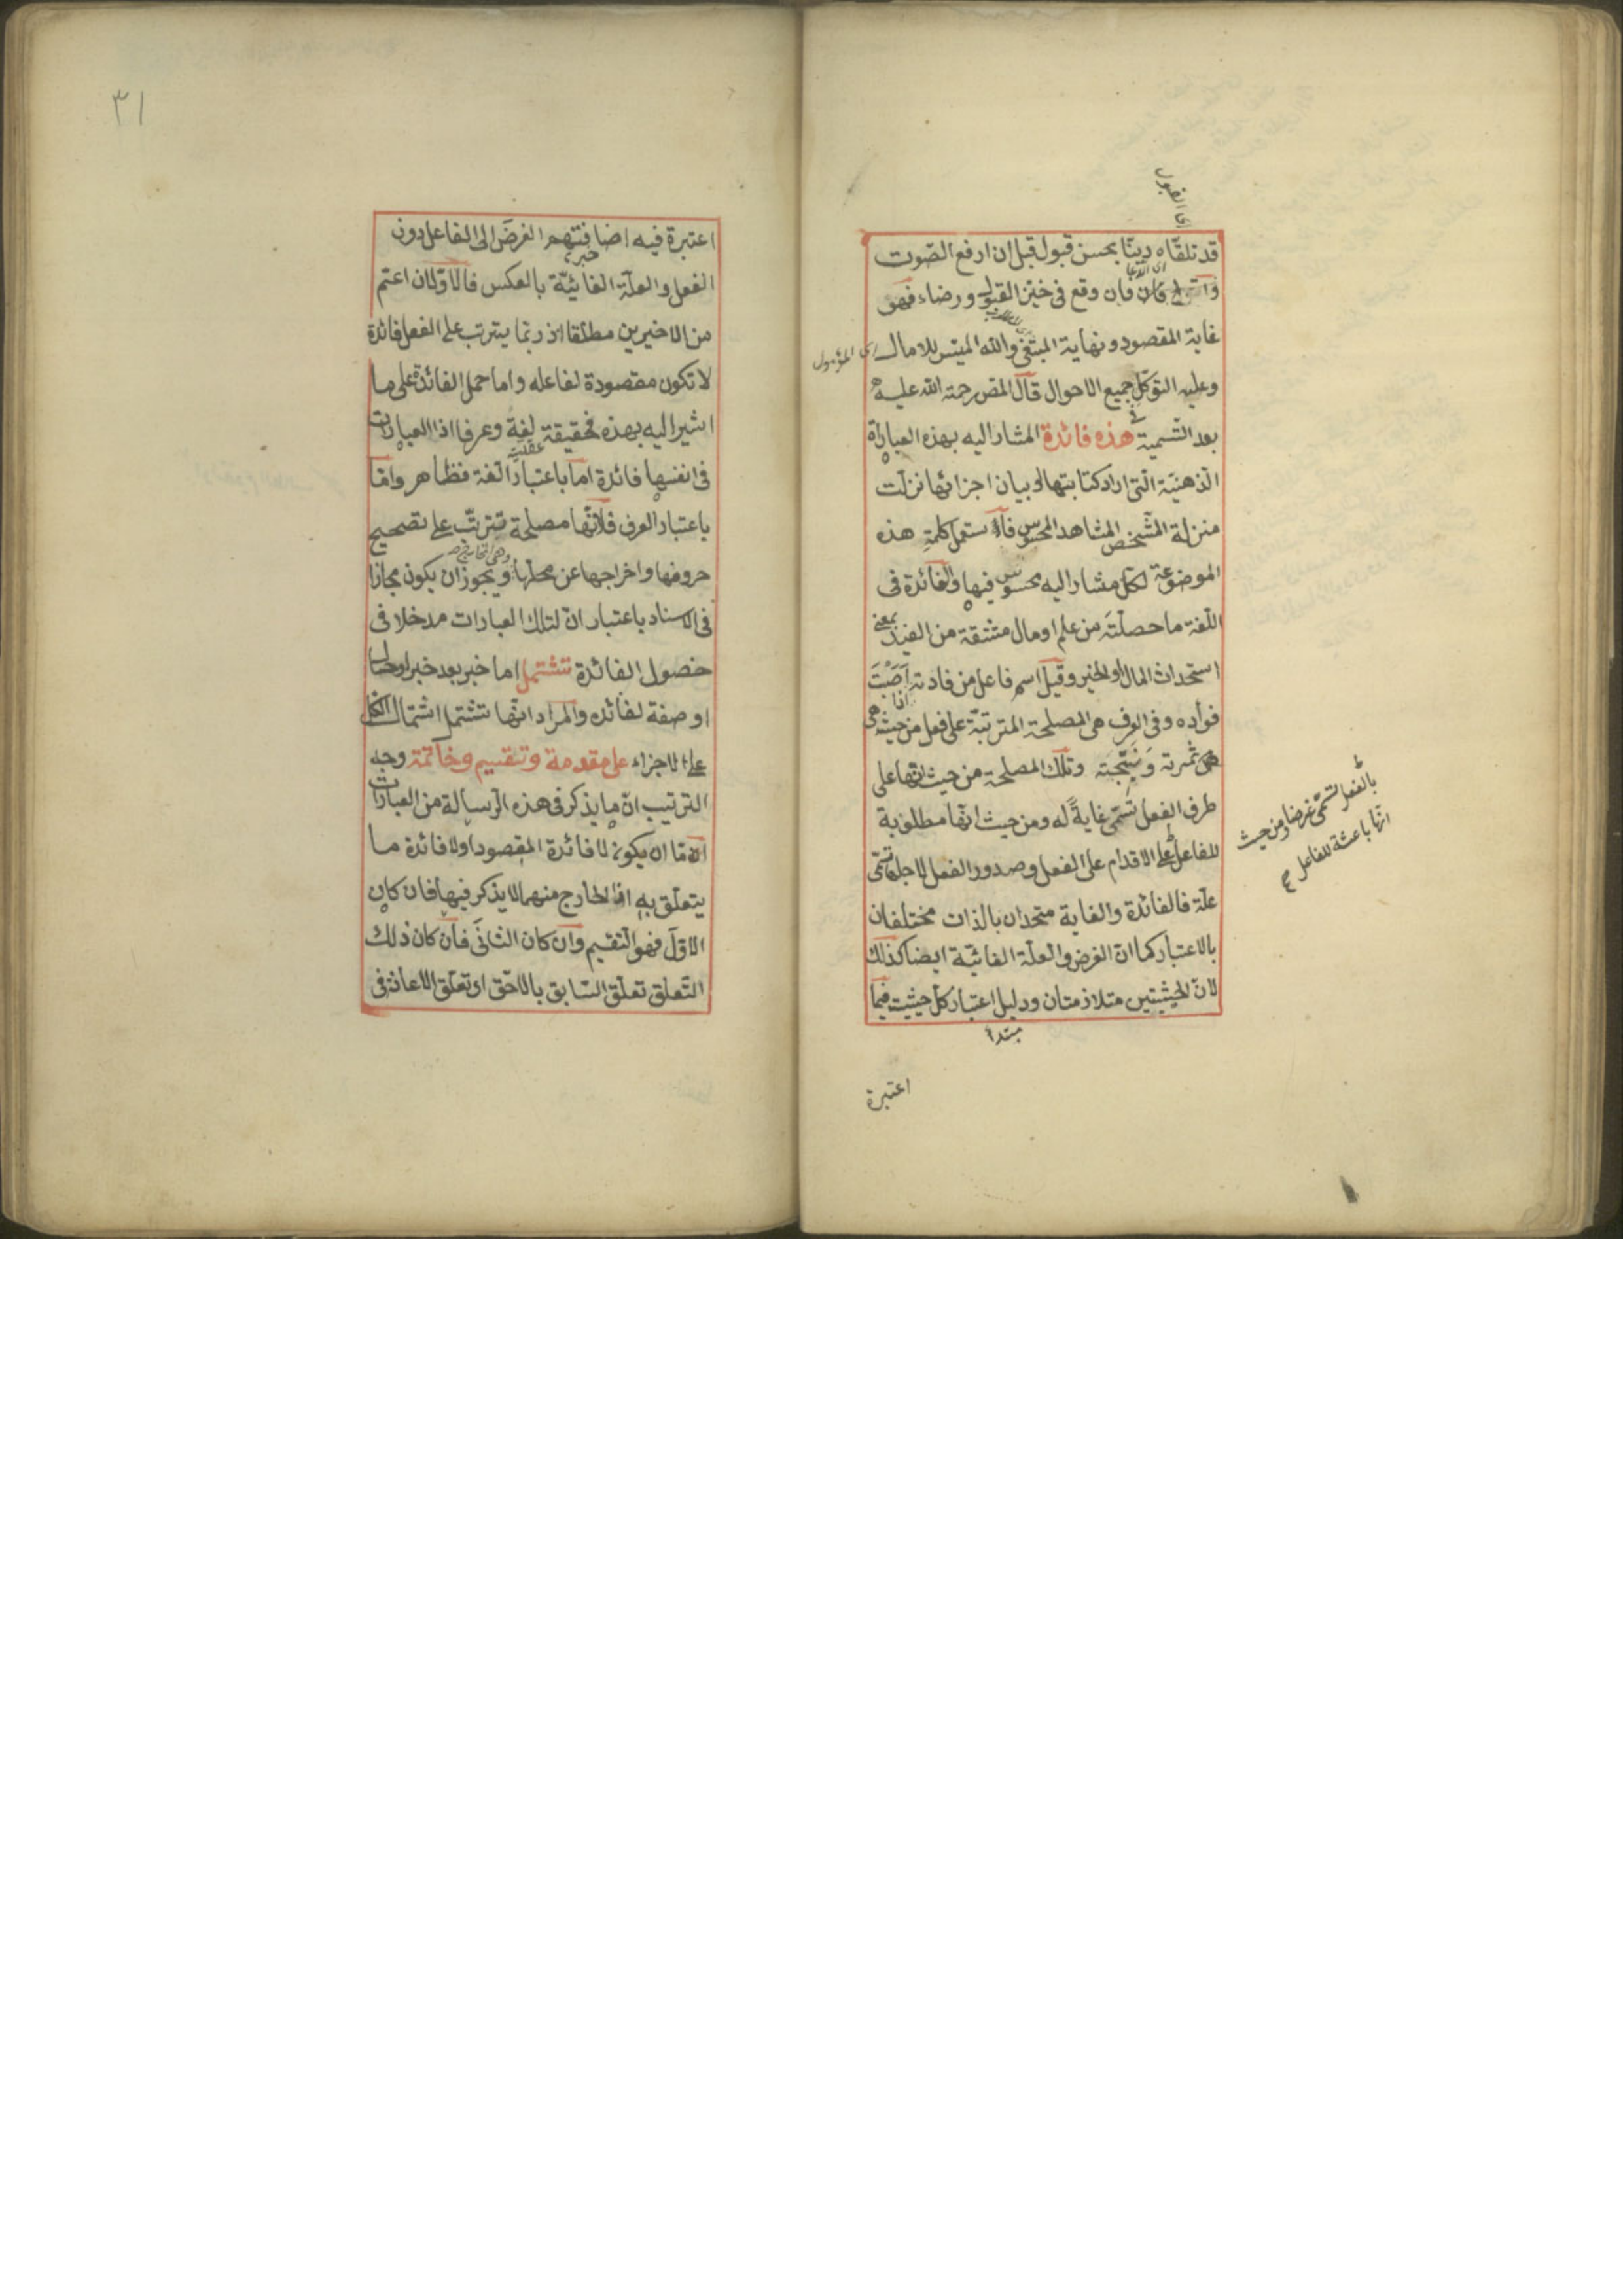 اى القبول
قد تلقاه ربنا بحسن قبول قبل ان ارفع الصوت
فان وقع فى حيز القبول ورضاء فهو
غاية المقصود ونهاية المبتغى والله الميسر للامال
اى المؤمول
وعليه التوكل فى جميع الاحوال قال المص رحمة الله عليه
بعد التسمية هذه فائدة المشار اليه بهذه العبارة
الذهنية التى اراد كتابتها لا بيان اجزائها نزلت
منزلة المشخص المشاهد المحسوس فاستعمل كلمة هذه
الموضوعة لكل مشار اليه محسوس فيها والفائدة فى
اللغة ما حصلته من علم او مال مشتقة من الفيد بمعنى
استحداث المال او الخير وقيل اسم فاعل من فادته اصبت
فؤاده وفى العرف هى المصلحة المترتبة على فعل من حيث هى
ثمرته ونتيجته وتلك المصلحة من حيث انها على
طرف الفعل تسمى غاية له ومن حيث انها مطلوبة
بالفعل تسمى غرضا ومن حيث
انها باعثة للفاعل
للفاعل على الاقدام على الفعل وصدور الفعل لاجلها تسمى
علة فالفائدة والغاية متحدان بالذات مختلفان
بالاعتبار كما ان الغرض والعلة الغائية ايضا كذلك
لان الحيثيتين متلازمتان ودليل اعتبار كل حيثيت فيما
مبتدا
اعتبرة
٣١
اعتبرة فيه اضافتهم الغرض الى الفاعل دون
خبره
الفعل والعلة الغائية بالعكس فالاولان اعتم
من الاخيرين مطلقا اذ ربما يترتب على الفعل فائدة
لا تكون مقصودة لفاعله واما حمل الفائدة على ما
اشير اليه بهذه فحقيقة لغة وعرفا اذ العبارات
عقلية
فى انفسها فائدة اما باعتبار اللغة فظاهر واما
باعتبار العرف فلانها مصلحة تترتب على تصحيح
حروفها واخراجها عن محلها ويجوز ان يكون مجازا
فى الاسناد باعتبار ان لتلك العبارات مدخلا فى
حصول الفائدة تشتمل اما خبر بعد خبر او حال
او صفة لفائده والمراد انها تشتمل اشتمال الكل
على الاجزاء على مقدمة وتقسيم وخاتمة وجه
الترتيب ان ما يذكر فى هذه الرسالة من العبارات
اما ان يكون لافائدة المقصود او لافائدة ما
يتعلق به اذ الخارج منهما لا يذكر فيها فان كان
الاول فهو التقسيم وان كان الثانى فان كان ذلك
التعلق تعلق السابق بالاحق او تعلق الاعانة فى